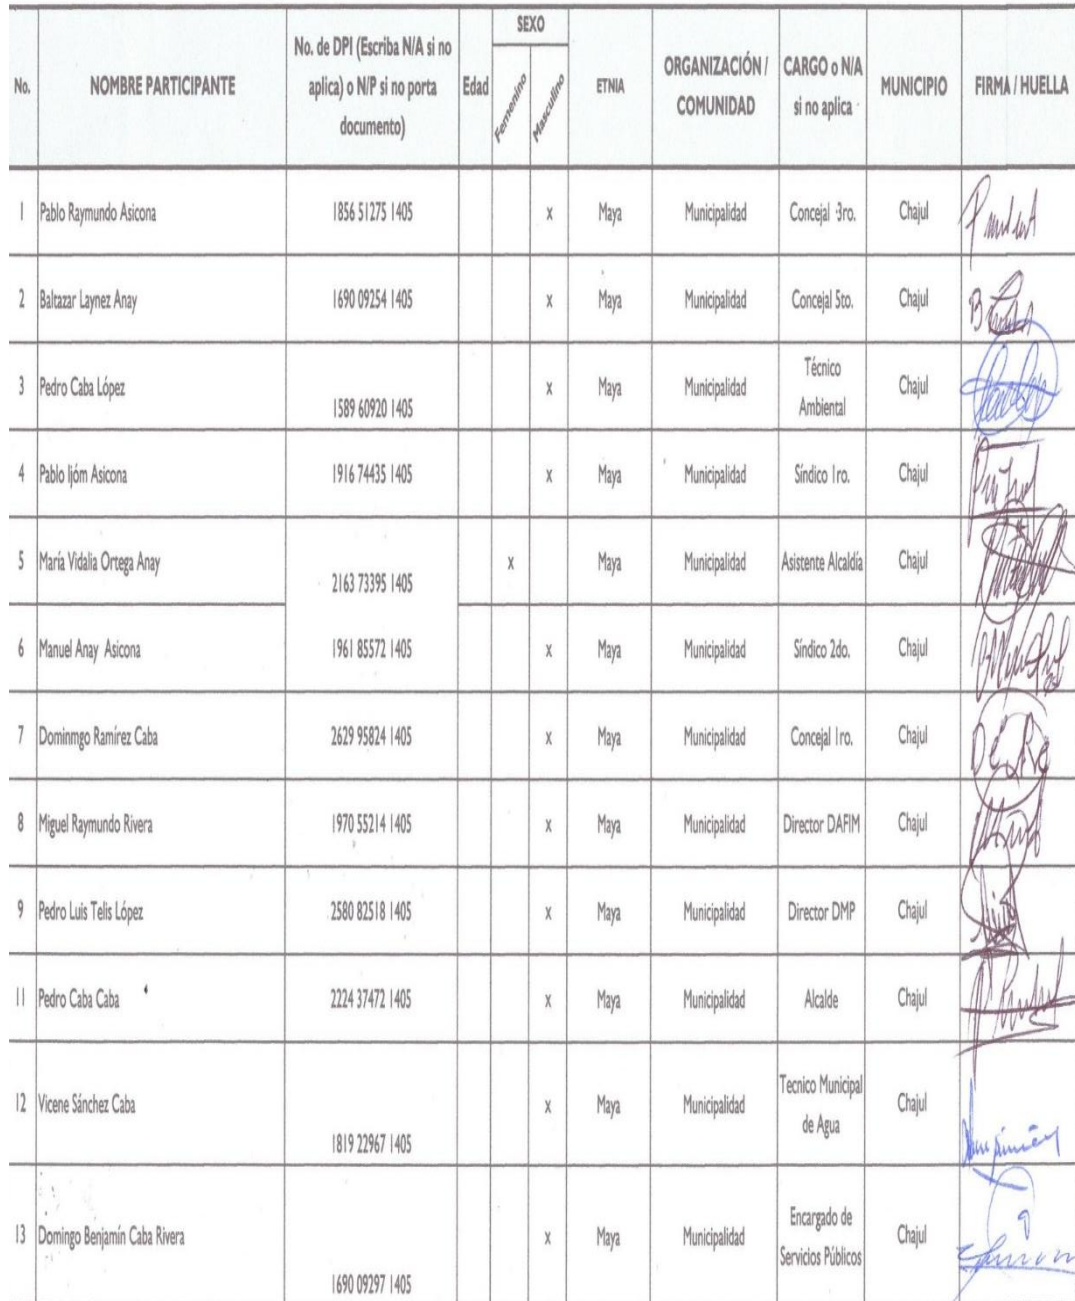 SEXO
No. NOMBRE PARTICIPANTE No. de DPI (Escriba N/A si no aplica) o N/P si no porta documento) Edad Femenino Masculino ETNIA ORGANIZACIÓN / COMUNIDAD CARGO o N/A si no aplica MUNICIPIO FIRMA / HUELLA
1 Pablo Raymundo Asicona 1856 51275 1405 x Maya Municipalidad Concejal 3ro. Chajul
2 Baltazar Laynez Anay 1690 09254 1405 x Maya Municipalidad Concejal 5to. Chajul
3 Pedro Caba López 1589 60920 1405 x Maya Municipalidad Técnico Ambiental Chajul
4 Pablo Ijóm Asicona 1916 74435 1405 x Maya Municipalidad Síndico 1ro. Chajul
5 María Vidalia Ortega Anay 2163 73395 1405 x Maya Municipalidad Asistente Alcaldía Chajul
6 Manuel Anay Asicona 1961 85572 1405 x Maya Municipalidad Síndico 2do. Chajul
7 Dominmgo Ramírez Caba 2629 95824 1405 x Maya Municipalidad Concejal 1ro. Chajul
8 Miguel Raymundo Rivera 1970 55214 1405 x Maya Municipalidad Director DAFIM Chajul
9 Pedro Luis Telis López 2580 82518 1405 x Maya Municipalidad Director DMP Chajul
11 Pedro Caba Caba 2224 37472 1405 x Maya Municipalidad Alcalde Chajul
12 Vicene Sánchez Caba 1819 22967 1405 x Maya Municipalidad Tecnico Municipal de Agua Chajul
13 Domingo Benjamín Caba Rivera 1690 09297 1405 x Maya Municipalidad Encargado de Servicios Públicos Chajul